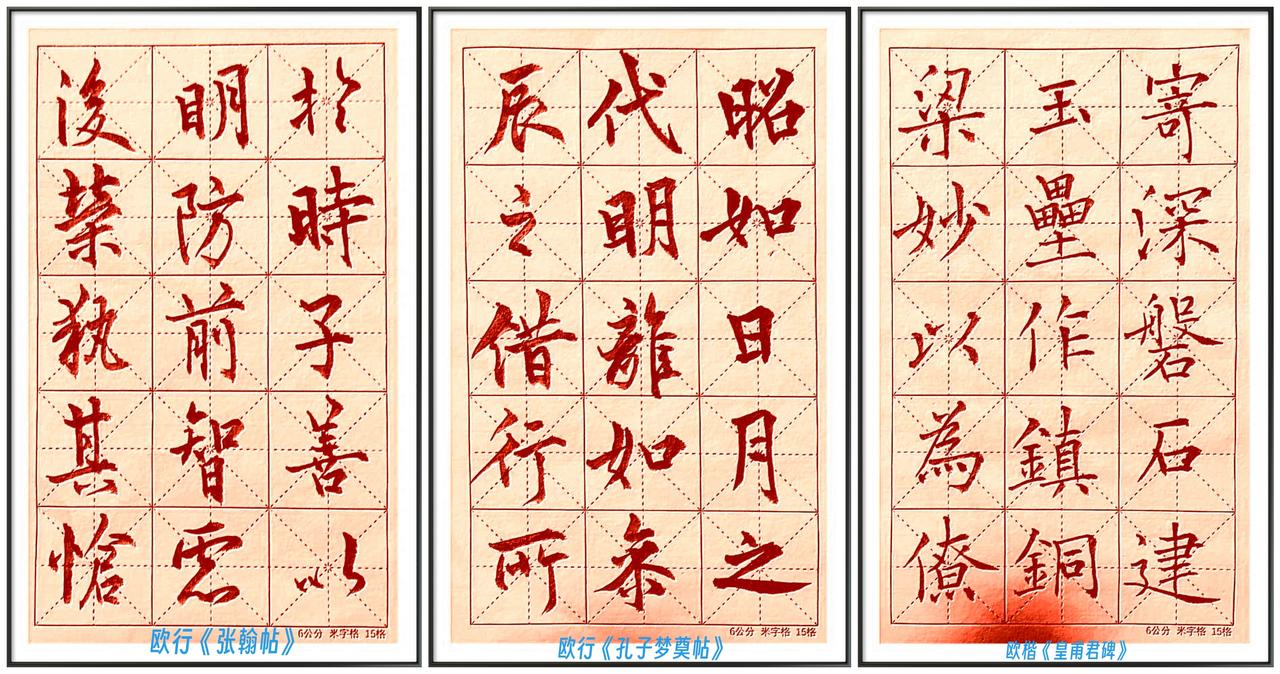 於時子善以
明防前智慮
後榮執其愴
6公分 米字格 15格
欧行《张翰帖》
昭如日月之
代明龍如參
辰之借行所
6公分 米字格 15格
欧行《孔子梦奠帖》
寄深磐石建
玉壘作鎮銅
梁妙以為僚
6公分 米字格 15格
欧楷《皇甫君碑》